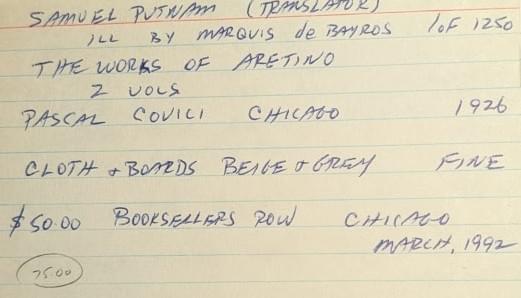 SAMUEL PUTNAM (TRANSLATOR)
ILL BY MARQUIS de BAYROS 1 OF 1250
THE WORKS OF ARETINO
2 VOLS
PASCAL COVICI CHICAGO 1926
CLOTH + BOARDS BEIGE & GREY FINE
$50.00 BOOKSELLERS ROW CHICAGO
MARCH, 1992
75.00